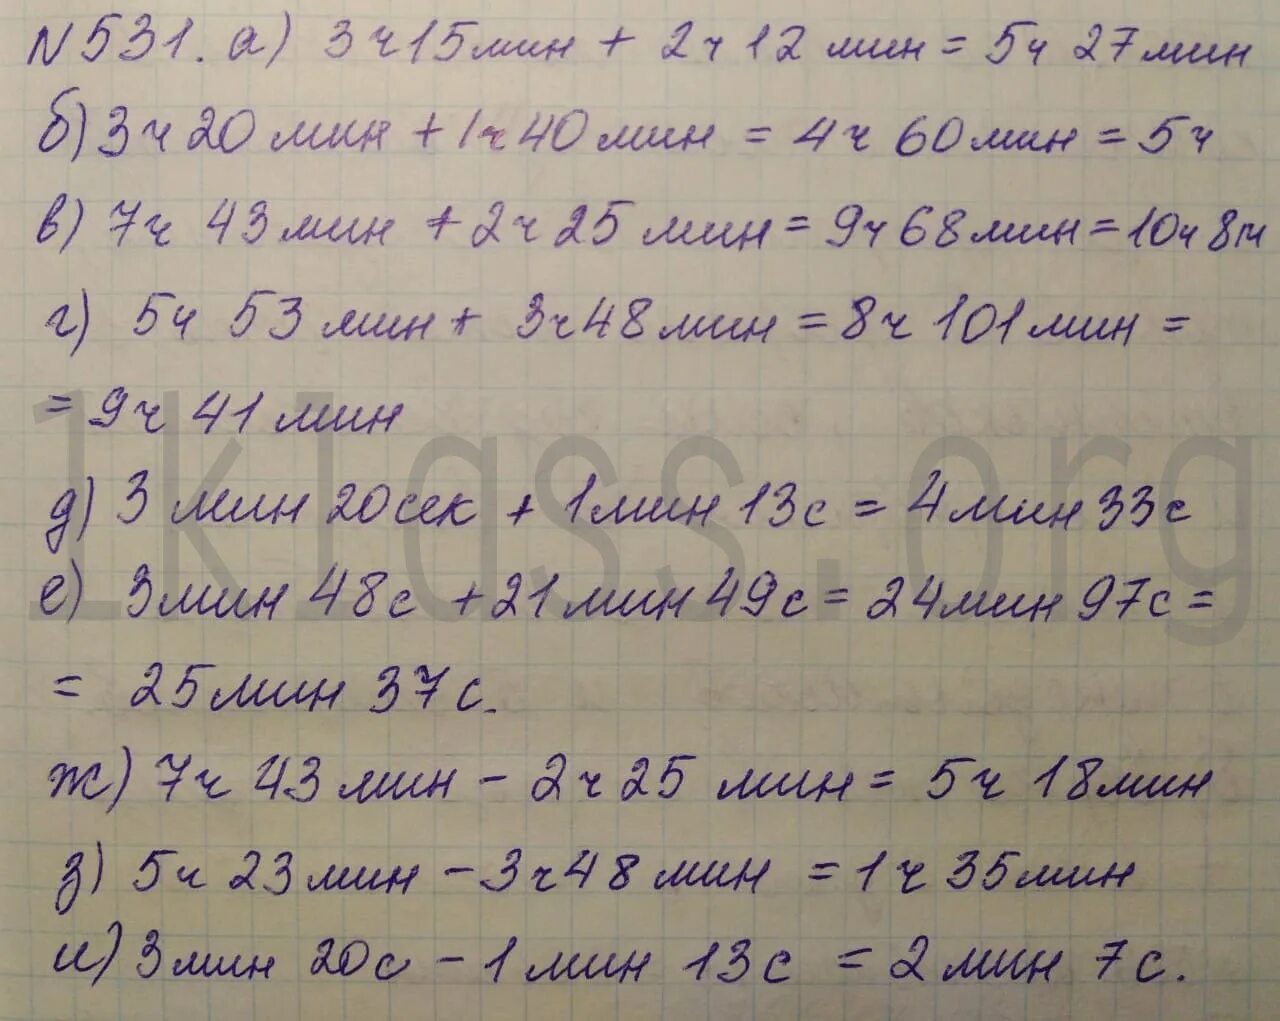 №531. а) 3ч15мин + 2ч 12 мин = 5ч 27мин
б) 3ч 20 мин + 1ч 40 мин = 4ч 60мин = 5ч
в) 7ч 43 мин + 2ч 25 мин = 9ч 68мин = 10ч 8м
г) 5ч 53 мин + 3ч 48 мин = 8ч 101 мин =
= 9ч 41 мин
д) 3 мин 20сек + 1мин 13с = 4мин 33с
е) 3мин 48с + 21мин 49с = 24мин 97с =
= 25мин 37с.
ж) 7ч 43 мин - 2ч 25 мин = 5ч 18мин
з) 5ч 23 мин - 3ч 48 мин = 1ч 35мин
и) 3мин 20с - 1 мин 13с = 2мин 7с.
1klass.org